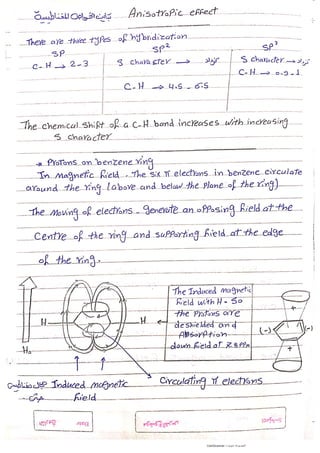 Anisotropic effect
There are three types of hybridization
SP SP² SP³
C-H → 2-3 S character → تزداد S character → تزداد
C-H → 4.5 - 6.5 C-H → 0.9-1
The chemical shift of a C-H bond increases with increasing
S character
* Protons on benzene ring
In magnetic field. The six π electrons in benzene circulate
around the ring (above and below the plane of the ring)
The Moving of electrons generate an opposing field at the
Centre of the ring and supporting field at the edge
of the ring.
The Induced magnetic
field with H. So
the Protons are
deshielded and
Absorption
down field at 7-8 PPm
H H
H₀
(-) (-)
+
+
Induced magnetic
field
Circulating π electrons
CamScanner